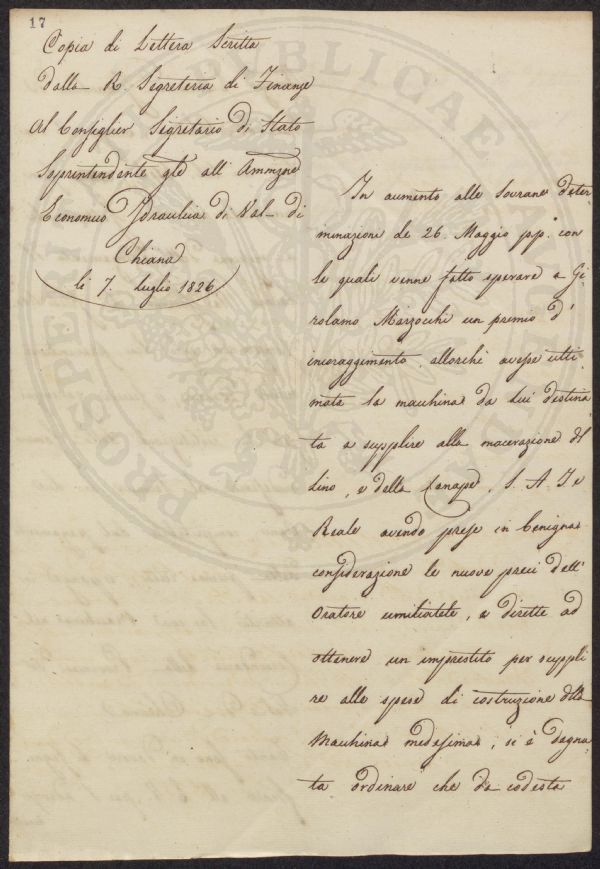 17
Copia di Lettera Scritta
dalla R. Segreteria di Finanze
Al Consiglier Segretario di Stato
Soprintendente Gle all' Ammzne
Economico Idraulica di Val di
Chiana
li 7. Luglio 1826
In aumento alle Sovrane deter
minazioni de 26. Maggio pp.º con
le quali venne fatto sperare a Gi
rolamo Marzocchi un premio d'
incoraggimento allorchè avesse ulti
mata la macchina da lui destina
ta a supplire alla macerazione del
Lino, e della Canape, S. A. I. e
Reale avendo prese in benigna
considerazione le nuove preci dell'
Oratore umiliatele, e dirette ad
ottenere un imprestito per suppli
re alle spese di costruzione della
Macchina medesima, si è degna
ta ordinare che da codesta
PUBLICAE
PROSPE